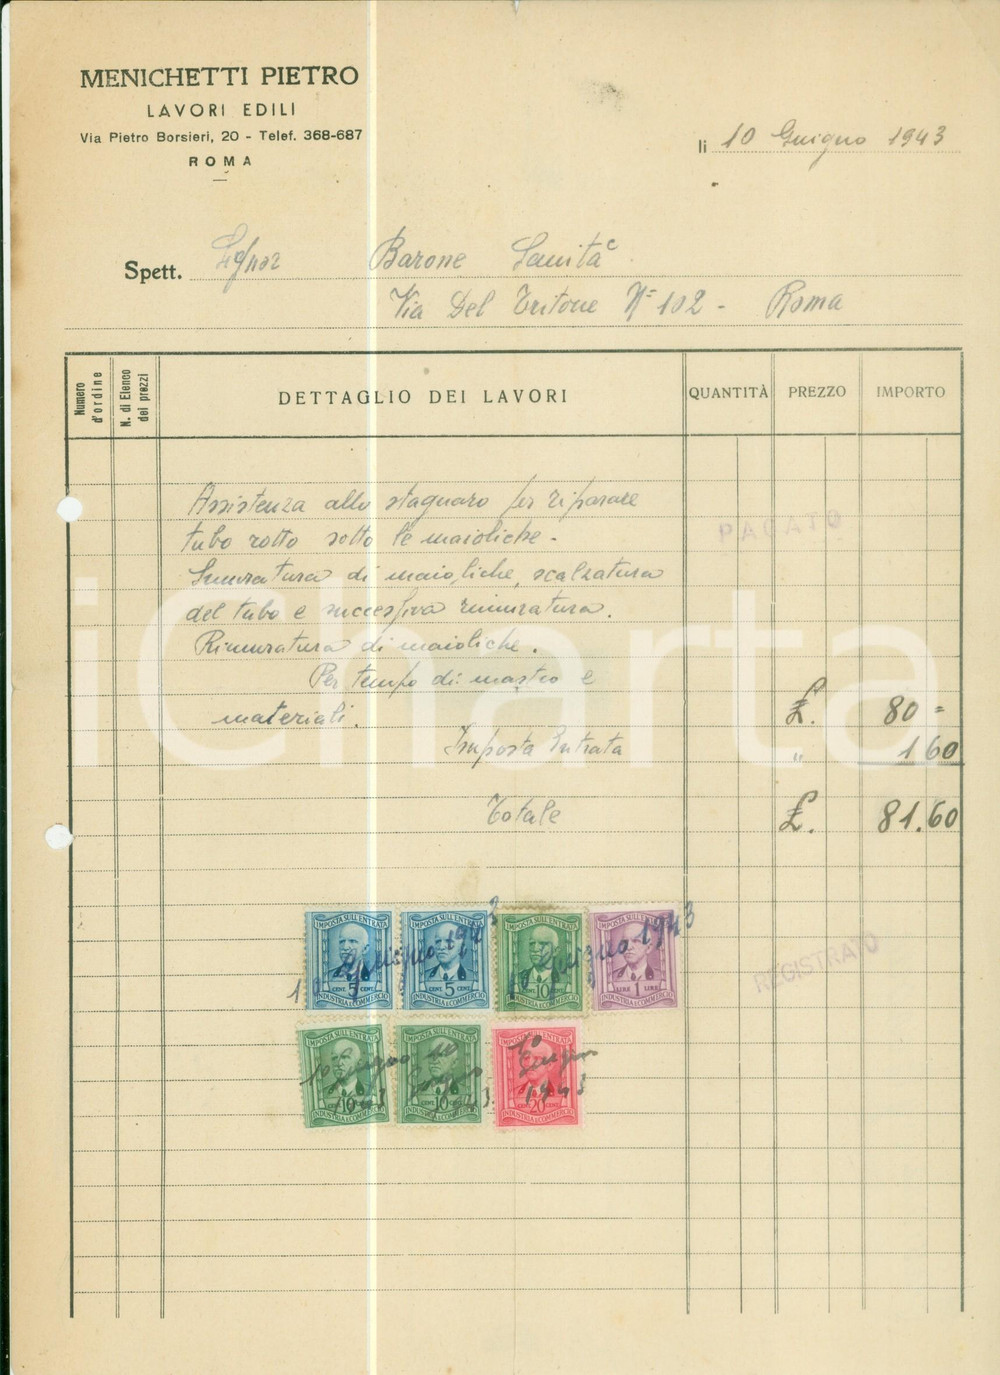 MENICHETTI PIETRO
LAVORI EDILI
Via Pietro Borsieri, 20 - Telef. 368-687
ROMA
li 10 Giugno 1943
Spett. Signor Barone Sanità
Via Del Tritone N= 102 - Roma
Numero d'ordine
N. di Elenco dei prezzi
DETTAGLIO DEI LAVORI
QUANTITÀ
PREZZO
IMPORTO
Assistenza allo stagnaro per riparare
tubo rotto sotto le maioliche -
PAGATO
Smuratura di maioliche, scalzatura
del tubo e successiva rimuratura.
Rimuratura di maioliche.
Per tempo di: mastro e
materiali. £. 80 =
Imposta Entrata " 1 60
Totale £. 81.60
iCharta
IMPOSTA SULL'ENTRATA IMPOSTA SULL'ENTRATA IMPOSTA SULL'ENTRATA IMPOSTA SULL'ENTRATA
10 Giugno 1943 10 Giugno 1943
CENT. 5 CENT. CENT. 5 CENT. CENT. 10 CENT. LIRE 1 LIRE
INDUSTRIA E COMMERCIO INDUSTRIA E COMMERCIO INDUSTRIA E COMMERCIO INDUSTRIA E COMMERCIO
REGISTRATO
IMPOSTA SULL'ENTRATA IMPOSTA SULL'ENTRATA IMPOSTA SULL'ENTRATA
10 Giugno 1943
CENT. 10 CENT. CENT. 10 CENT. CENT. 20 CENT.
INDUSTRIA E COMMERCIO INDUSTRIA E COMMERCIO INDUSTRIA E COMMERCIO